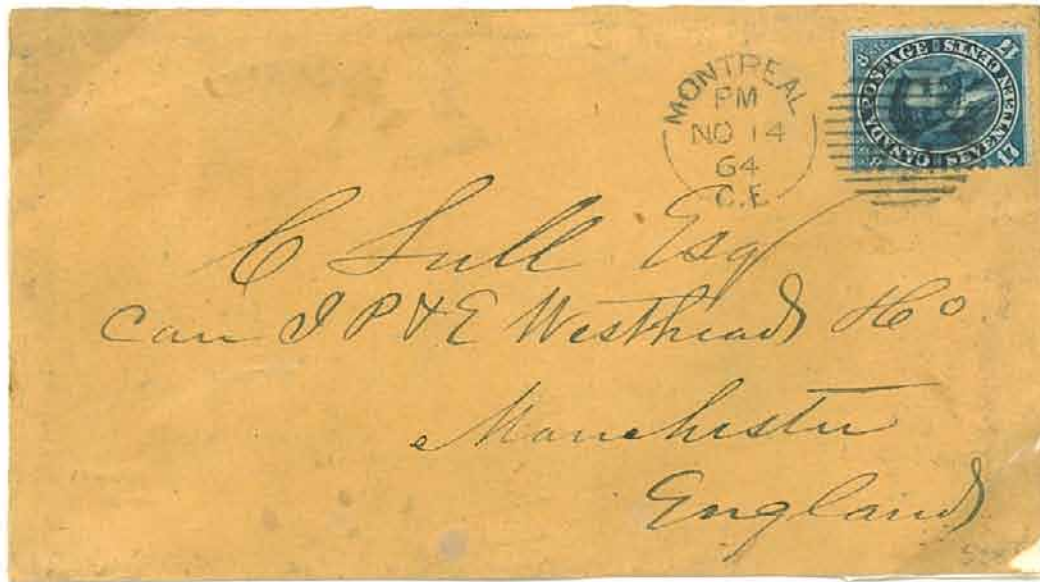 MONTREAL
PM
NO 14
64
C.E
CANADA POSTAGE SEVENTEEN CENTS
17
17
C Lull Esq
Care J P & E Westhead & Co
Manchester
England